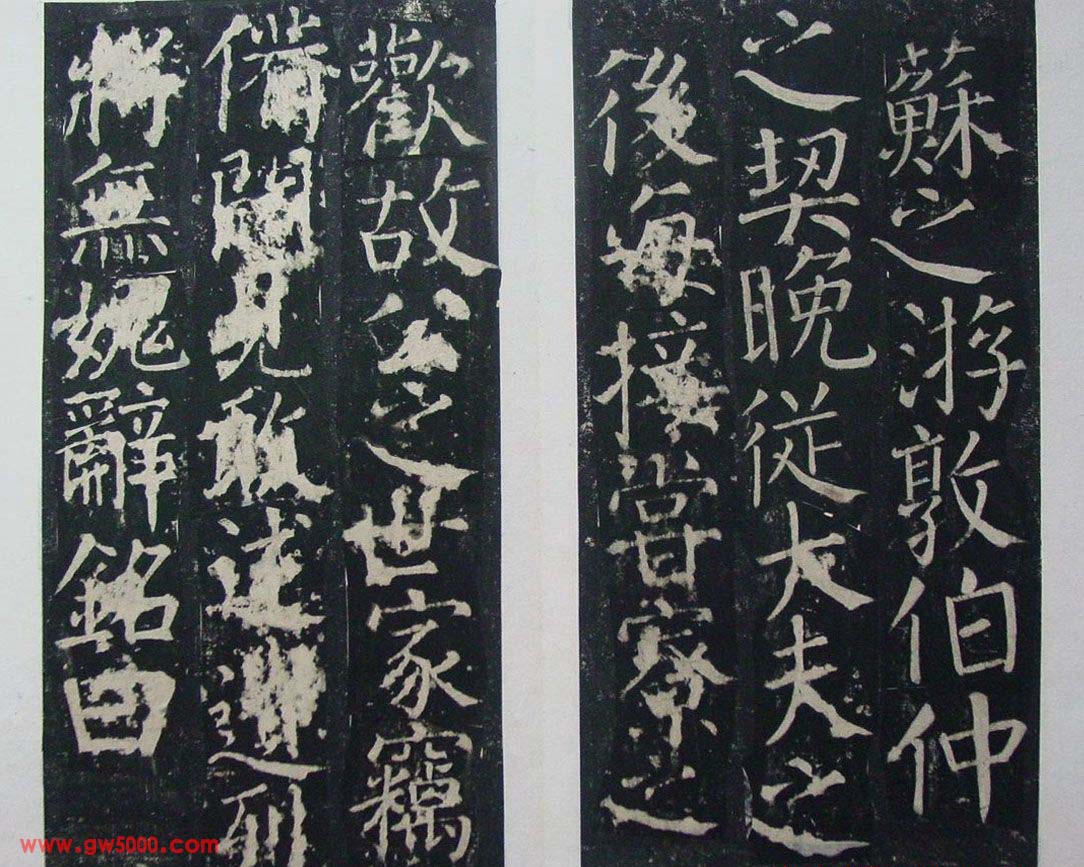 蘇之游敦伯仲
之契晚從大夫之
後每接嘗寮之
歡故公之世家竊
備聞見敢述遺烈
將無媿辭銘曰
www.gw5000.com